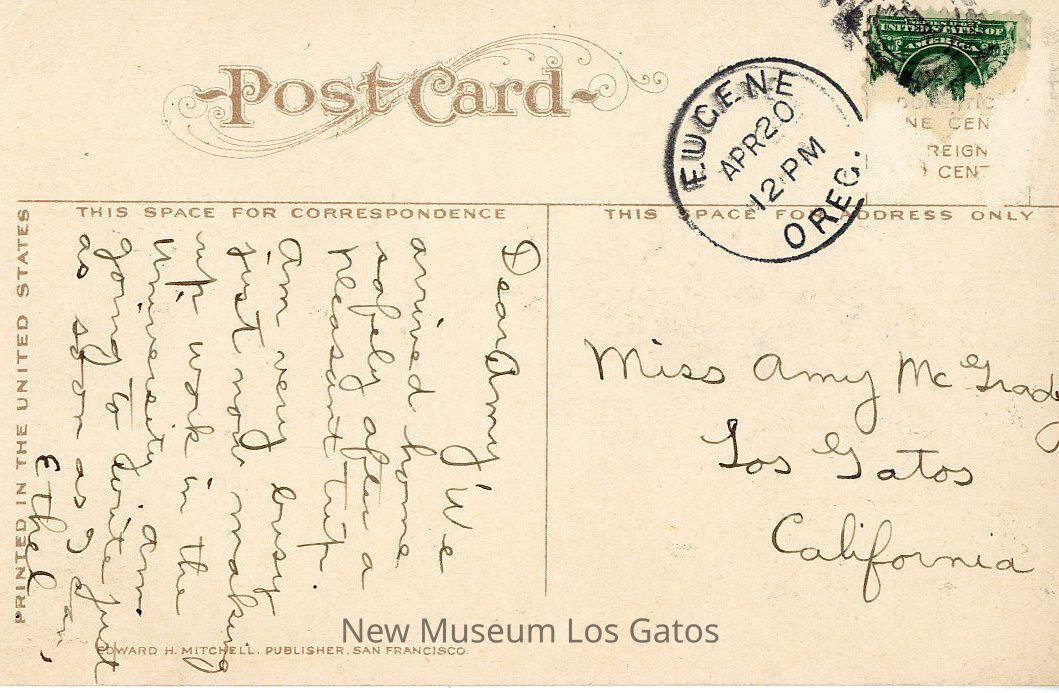 Post Card
EUGENE
APR 20
12 PM
OREG.
UNITED STATES OF
AMERICA
DOMESTIC
NE CEN
REIGN
CENT
THIS SPACE FOR CORRESPONDENCE
THIS SPACE FOR ADDRESS ONLY
PRINTED IN THE UNITED STATES
Dear Amy, We
arrived home
safely after a
pleasant trip
Am very busy
just now making
up work in the
University. Am
going to write just
as soon as I can.
Ethel
Miss Amy McGrady
Los Gatos
California
New Museum Los Gatos
EDWARD H. MITCHELL, PUBLISHER, SAN FRANCISCO.